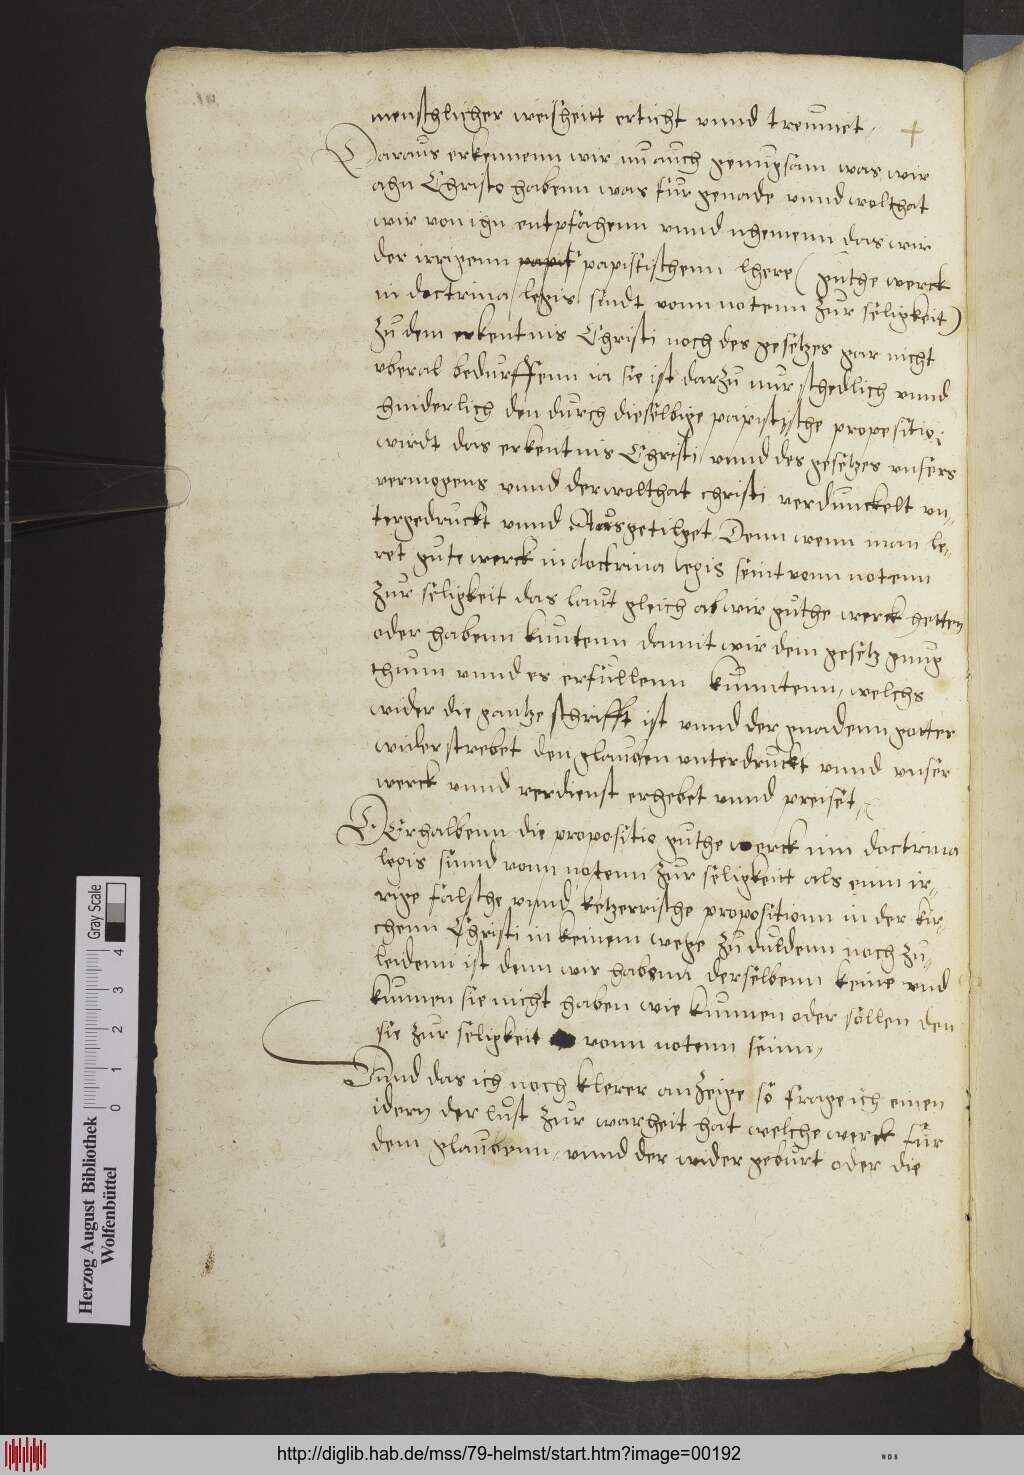 menschlicher weisheitt erticht vnnd treumet.
Daraus erkennenn wir nu auch genugsam was wir
ahn Christo habenn was fur genade vnnd wolthat
wir von ihn entpfahenn vnnd nhemenn das wir
der irrigenn papist papistischenn lhere (guthe werck
in doctrina legis sindt vonn notenn zur seligkeit)
zu dem erkentnis Christi noch des gesetzes gar nicht
vberal bedurffenn ia sie ist darzu nur schedlich vnnd
hinderlich den durch dieselbige papistische propositio
wirdt das erkentnis Christi vnnd des gesetzes vnsers
vermogens vnnd der wolthat christi verdunckelt vn-
tergedruckt vnnd Ausgetilget Denn wenn man le-
ret gute werck in doctrina legis seint vonn notenn
zur seligkeit das laut gleich ab wir guthe werck hetten
oder habenn kuntenn damit wir dem gesetz gnug
thunn vnnd es erfullenn kunntenn, welchs
wider die gantze schrifft ist vnnd der gnadenn gottes
widerstrebet den glauben vnterdruckt vnnd vnser
werck vnnd verdienst erhebet vnnd preiset.
DErhalbenn die propositio guthe werck inn doctrina
legis sinnd vonn notenn zur seligkeitt als einn ir-
rige falsche vnnd ketzerrische propositionn in der kir-
chenn Christi in keinem wege zu duldenn noch zu-
leidenn ist denn wir habenn derselbenn keine vnd
kunnen sie nicht haben wie kunnen oder sollen den
sie zur seligkeit vonn notenn seinn,
Vnnd das ich noch klerer anzeige so frage ich einen
idern der lust zur warheit hat welche werck fur
dem glaubenn, vnnd der widergeburt oder die
Herzog August Bibliothek
Wolfenbüttel
0 1 2 3 4
Gray Scale
http://diglib.hab.de/mss/79-helmst/start.htm?image=00192
WDB